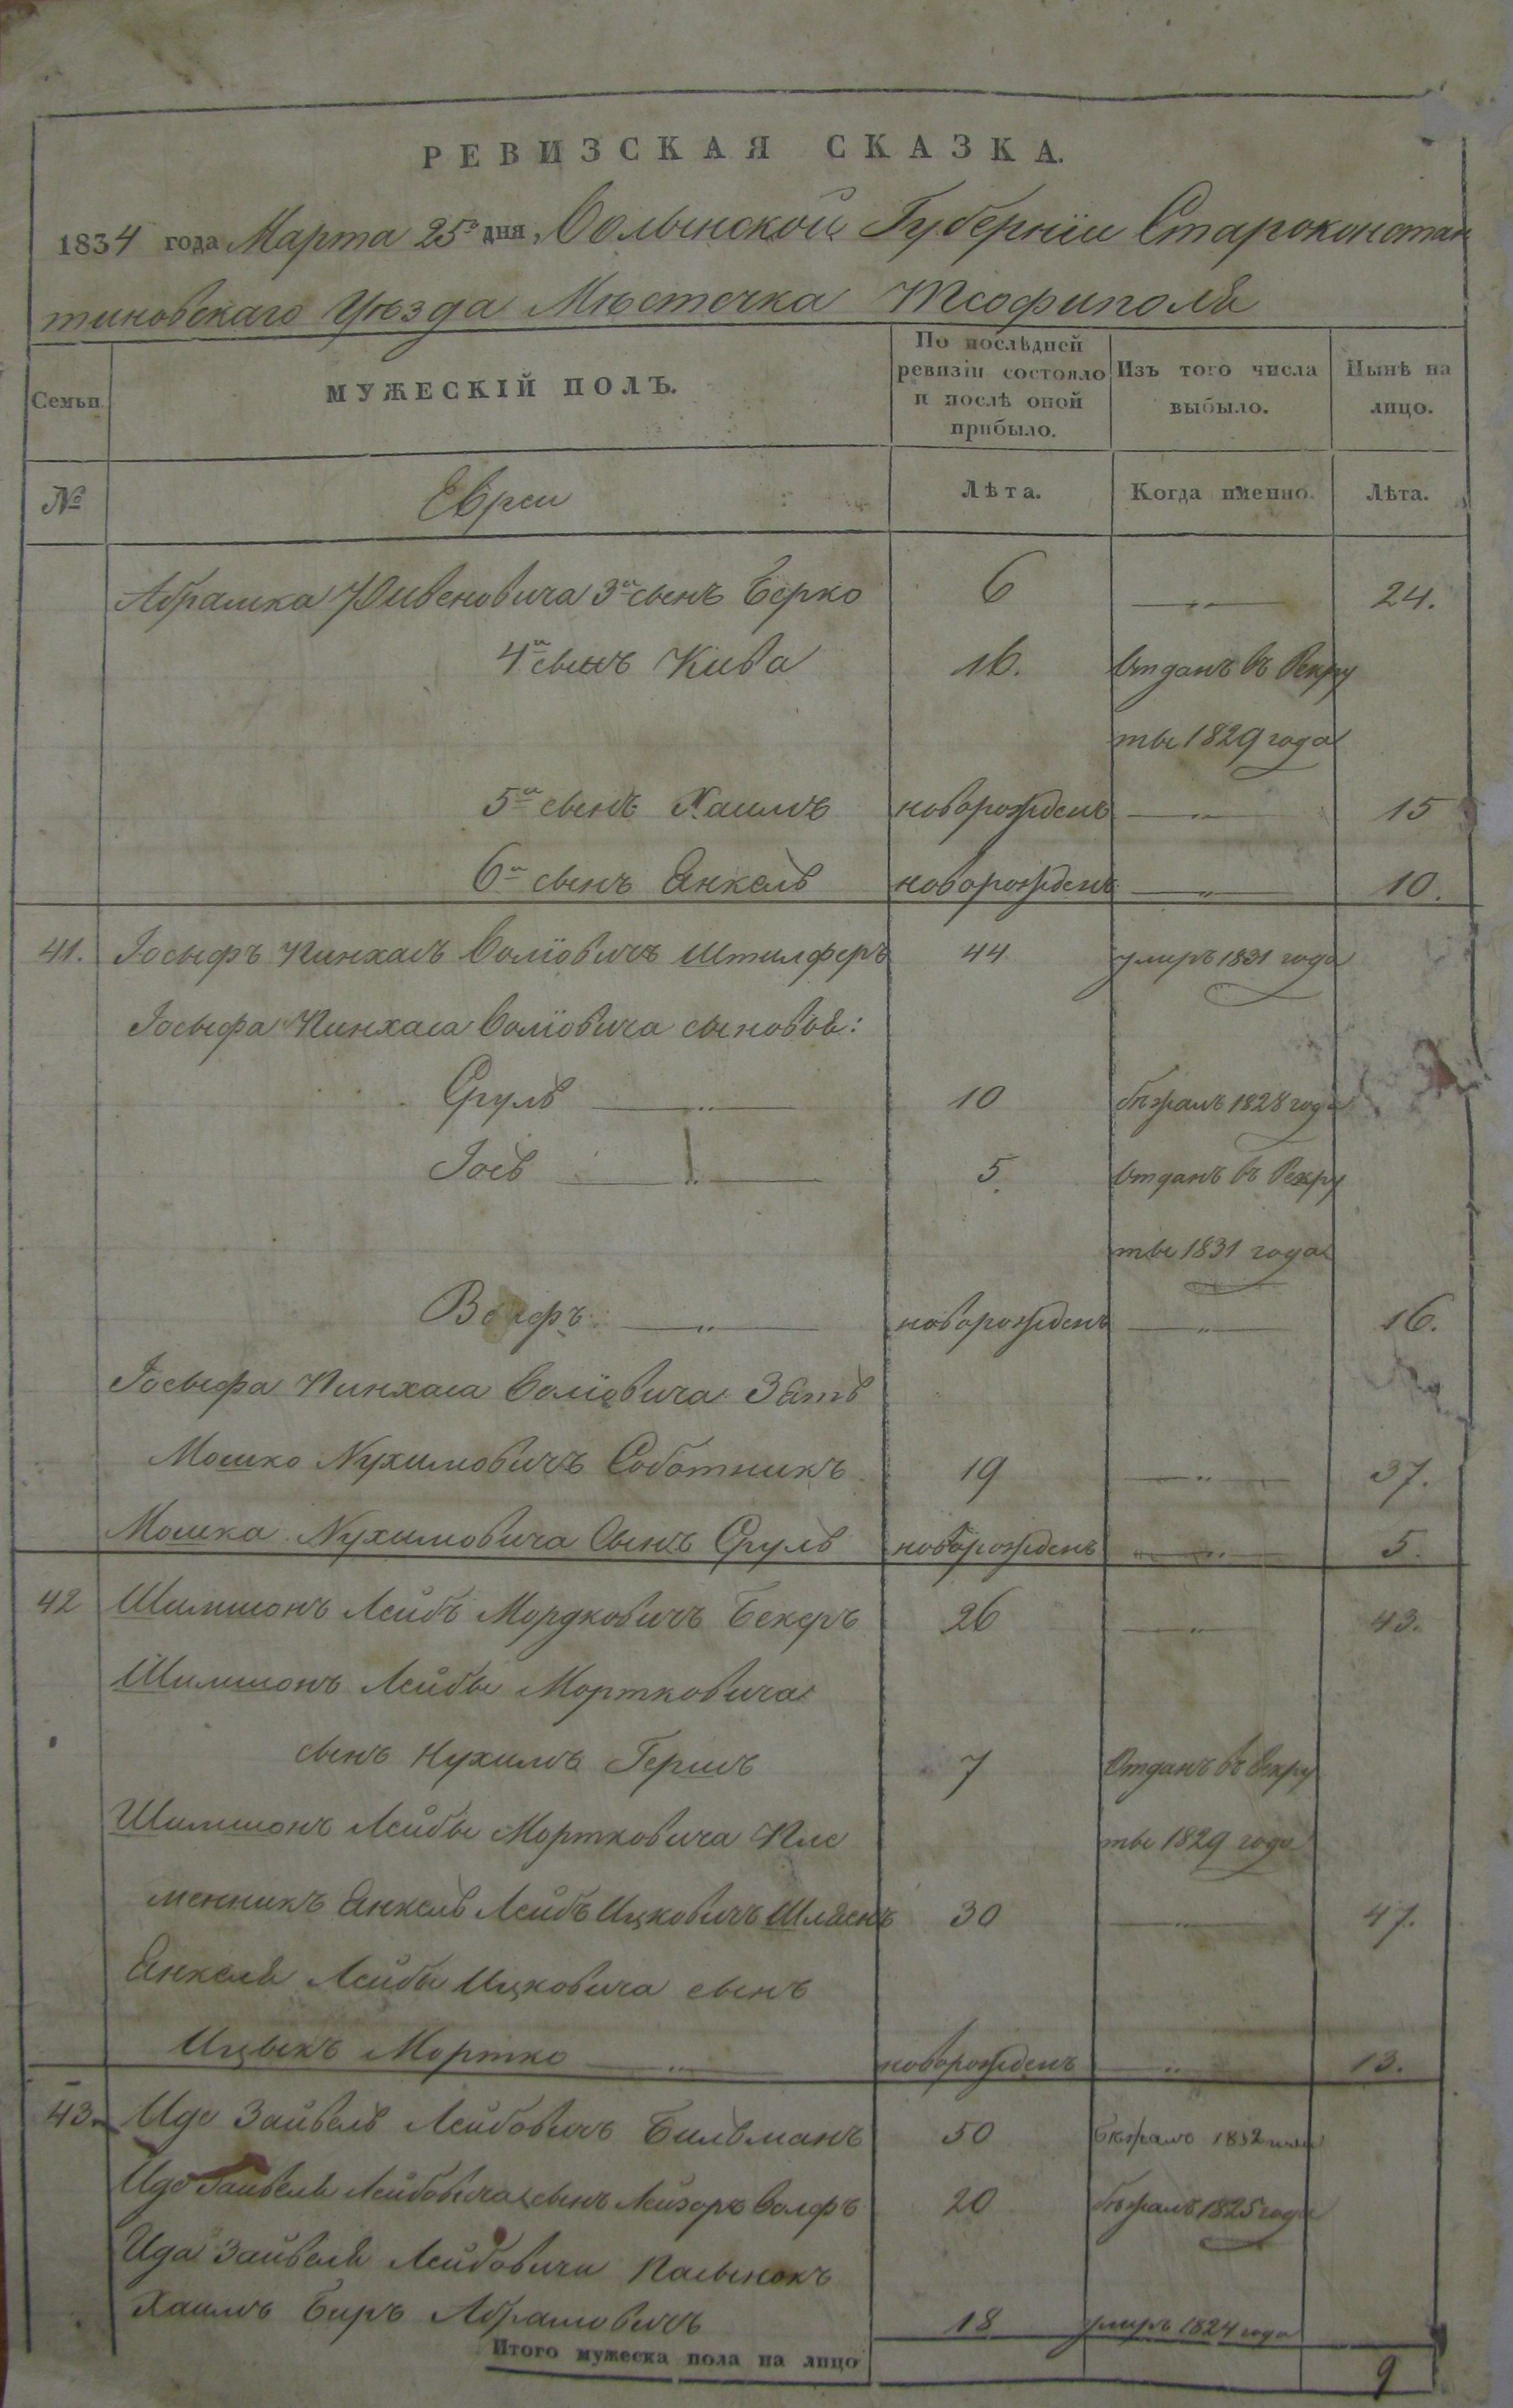 РЕВИЗСКАЯ СКАЗКА.
1834 года Марта 25го дня Волынской Губерніи Староконстан
тиновскаго Уѣзда Мѣстечка Тсофиполя
Семьи
МУЖЕСКІЙ ПОЛЪ.
По послѣдней ревизіи состояло и послѣ оной прибыло.
Изъ того числа выбыло.
Нынѣ на лицо.
№ Евреи Лѣта. Когда именно. Лѣта.
Абрамка Юивеновича 3й сынъ Берко 6 —„— 24.
4й сынъ Кива 16. Отданъ въ Рекру
ты 1829 года
5й сынъ Хаимъ новорожденъ —„— 15
6й сынъ Янкель новорожденъ —„— 10.
41. Іосыфъ Пинхасъ Волїовичъ Штилферъ 44 умиръ 1831 года
Іосыфа Пинхаса Волїовича сыновья:
Сруль —„— 10 бѣжалъ 1828 года
Іось —„— 5. Отданъ въ Рекру
ты 1831 года
Волфъ —„— новорожденъ —„— 16.
Іосыфа Пинхаса Волїовича Зять
Мошко Нухимовичъ Соботникъ 19 —„— 37.
Мошка Нухимовича Сынъ Сруль новорожденъ —„— 5.
42 Шимшонъ Лейбъ Мордковичъ Бекеръ 26 —„— 43.
Шимшонъ Лейбы Мортковича
сынъ Нухимъ Гершъ 7 Отданъ въ Рекру
Шимшонъ Лейбы Мортковича Пле ты 1829 года
менникъ Янкель Лейбъ Ицковичъ Шляенъ 30 —„— 47.
Янкеля Лейбы Ицковича сынъ
Ицыкъ Мортко —„— новорожденъ —„— 13.
43. Идо Зайвель Лейбовичъ Бильманъ 50 Бѣжалъ 1832
Идо Зайвеля Лейбовича сынъ Лейзоръ Волфъ 20 бѣжалъ 1825 года
Ида Зайвеля Лейбовича Пасынокъ
Хаимъ Биръ Абрамовичъ 18 умиръ 1824 года
Итого мужеска пола на лицо 9